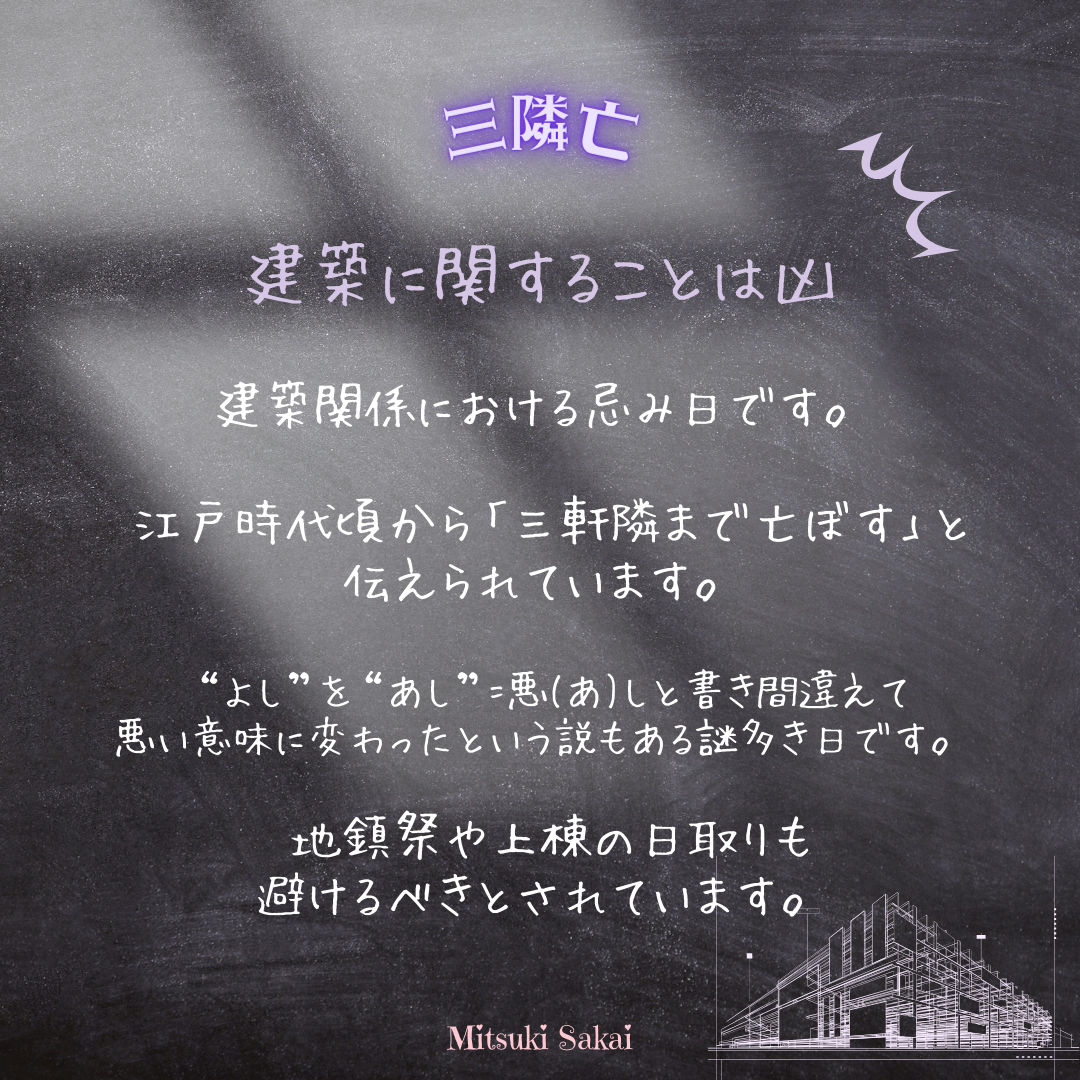 三隣亡
建築に関することは凶
建築関係における忌み日です。
江戸時代頃から「三軒隣まで亡ぼす」と
伝えられています。
“よし”を“あし”=悪(あ)しと書き間違えて
悪い意味に変わったという説もある謎多き日です。
地鎮祭や上棟の日取りも
避けるべきとされています。
Mitsuki Sakai